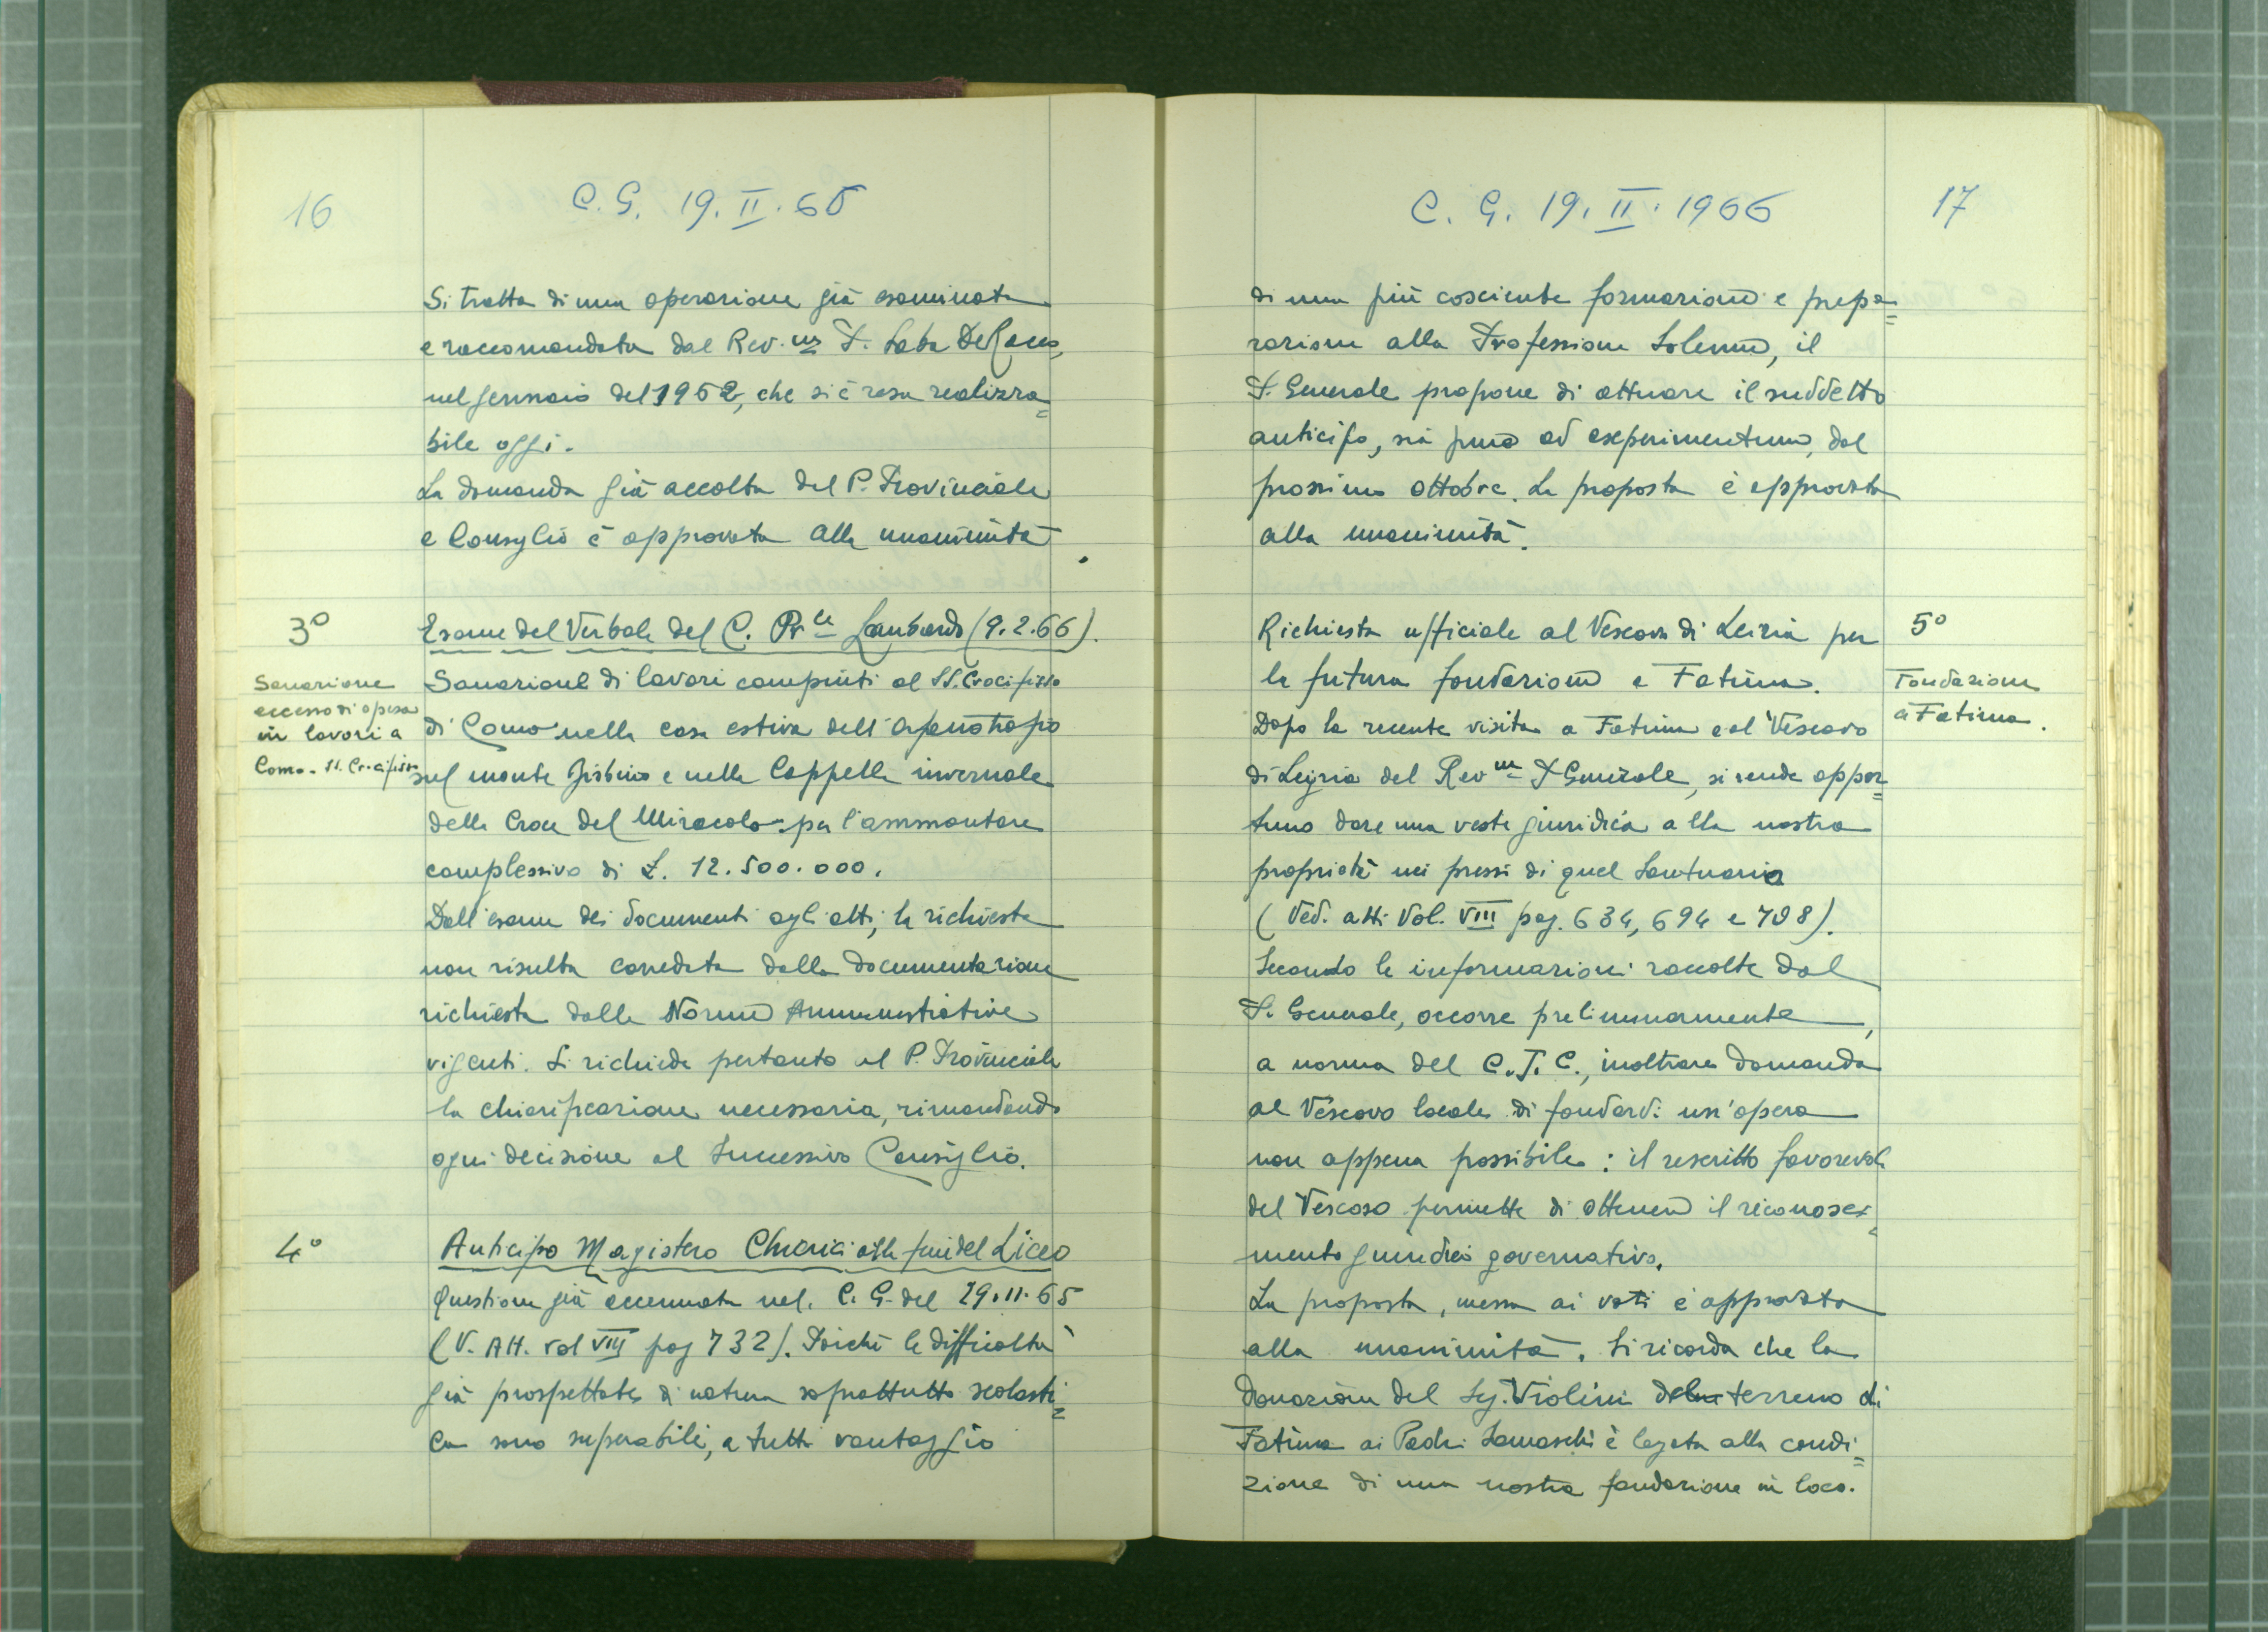 16
C. G. 19. II. 66
Si tratta di una operazione già esaminata
e raccomandata dal Rev.mo P. Saba De Rocco,
nel gennaio del 1962, che si è resa realizza=
bile oggi.
La domanda già accolta dal P. Provinciale
e Consiglio è approvata alla unanimità.
3º
Esame del Verbale del C. Pr.le Lombardo (9.2.66).
Sanazione
eccesso di spesa
in lavori a
Como - SS. Crocifisso
Sanazione di lavori compiuti al SS. Crocifisso
di Como nella casa estiva dell'orfanotrofio
sul monte Bisbino e nella Cappella invernale
della Croce del Miracolo per l'ammontare
complessivo di £. 12.500.000.
Dall'esame dei documenti agli atti, la richiesta
non risulta corredata dalla documentazione
richiesta dalle Norme Amministrative
vigenti. Si richiede pertanto al P. Provinciale
la chiarificazione necessaria, rimandando
ogni decisione al successivo Consiglio.
4º
Anticipo Magistero Chierici alla fine del Liceo
Questione già accennata nel C. G. del 29.11.65
(V. Att. vol VIII pag 732). Poiché le difficoltà
già prospettate di natura soprattutto scolasti=
ca sono superabili, a tutto vantaggio
C. G. 19. II. 1966
17
di una più cosciente formazione e prepa=
razione alla Professione Solenne, il
P. Generale propone di attuare il suddetto
anticipo, sia pure ad experimentum, dal
prossimo ottobre. La proposta è approvata
alla unanimità.
5º
Fondazione
a Fatima.
Richiesta ufficiale al Vescovo di Leiria per
la futura fondazione a Fatima.
Dopo la recente visita a Fatima e al Vescovo
di Leiria del Rev.mo P. Generale, si rende oppor=
tuno dare una veste giuridica alla nostra
proprietà nei pressi di quel Santuario
(Ved. atti Vol. VIII pag. 634, 694 e 708).
Secondo le informazioni raccolte dal
P. Generale, occorre preliminarmente,
a norma del C.I.C., inoltrare domanda
al Vescovo locale di fondarvi un'opera
non appena possibile: il rescritto favorevole
del Vescovo permette di ottenere il riconosci=
mento giuridico governativo.
La proposta, messa ai voti è approvata
alla unanimità. Si ricorda che la
donazione del Sig. Violini del terreno di
Fatima ai Padri Somaschi è legata alla condi=
zione di una nostra fondazione in loco.